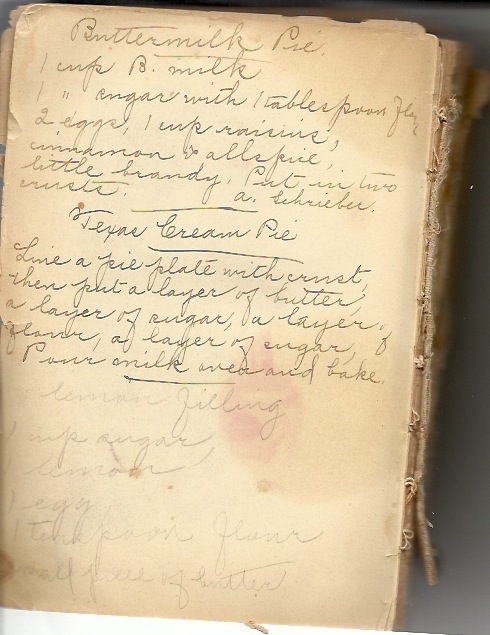 Buttermilk Pie
1 cup B. milk
1 " sugar with 1 tablespoon
2 eggs, 1 cup raisins,
cinnamon & allspice,
little brandy. Put in two
crusts. A. Schrieber.
Texas Cream Pie
Line a pie plate with crust,
then put a layer of butter,
a layer of sugar, a layer of
flour, a layer of sugar,
Pour milk over and bake.
lemon filling
1 cup sugar
1 lemon
1 egg
1 teaspoon flour
small piece of butter